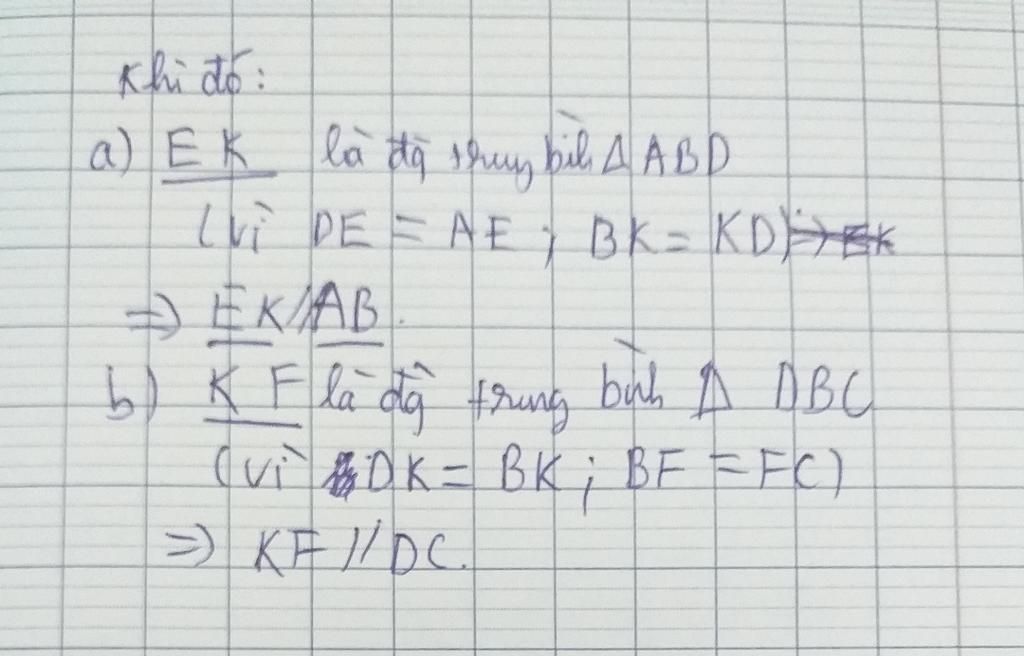 Khi đó:
a) EK là đg trung bình Δ ABD
(vì DE = AE; BK = KD)
=> EK // AB.
b) KF là đg trung bình Δ DBC
(vì DK = BK; BF = FC)
=> KF // DC.